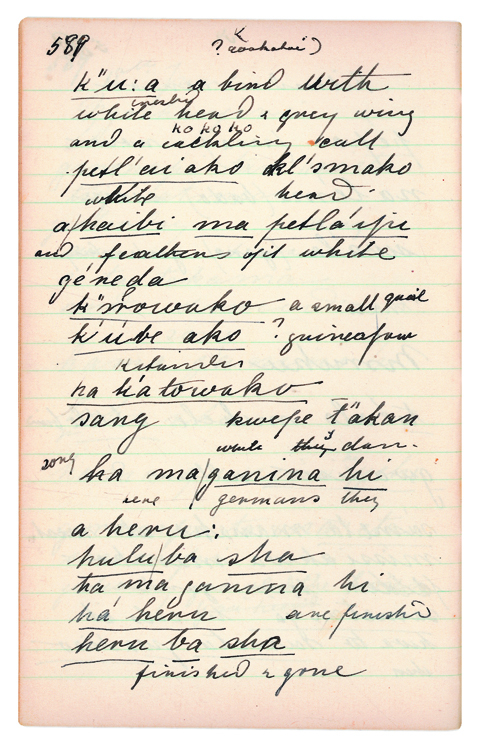 589
k"u: a a bird with
white head & grey wing
ko ko ko
and a cackling call
petl'ai ako
white head
a/haibi ma petláiju
and feathers of it white
géneda
k"ŕowako a small quail
k'úbe ako ? guineafow
ha kátowako
sang kwepe
while they dan-
song ka ma/ganina hi
germans they
a heru:
hulu/ba sha
ha ma ganina hi
há heru are finished
heru ba sha
finished & gone